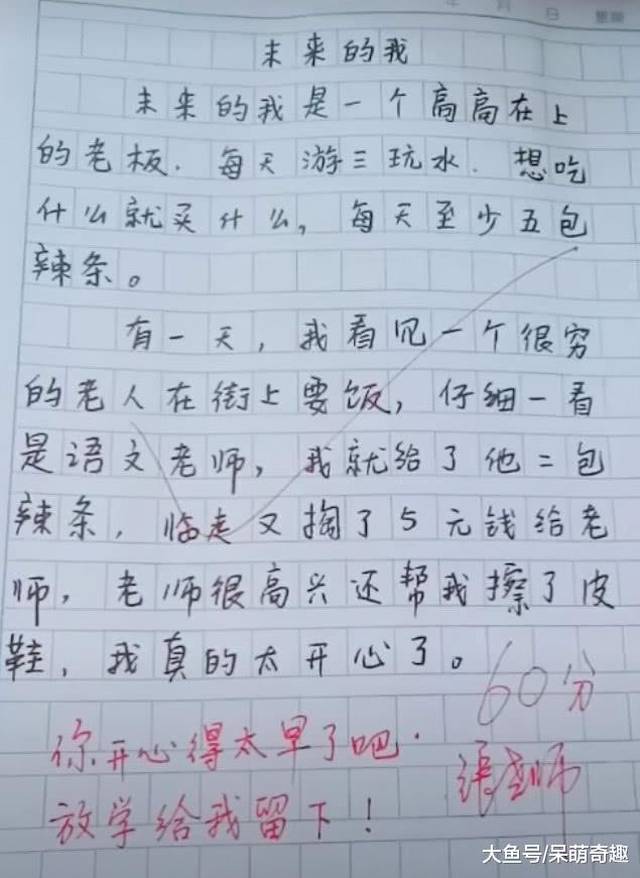 年 月 日 星期
未来的我
未来的我是一个高高在上
的老板.每天游三玩水.想吃
什么就买什么,每天至少五包
辣条。
有一天,我看见一个很穷
的老人在街上要饭,仔细一看
是语文老师,我就给了他二包
辣条,临走又掏了5元钱给老
师,老师很高兴还帮我擦了皮
鞋,我真的太开心了。
60分
你开心得太早了吧.
放学给我留下!
老师
大鱼号/呆萌奇趣